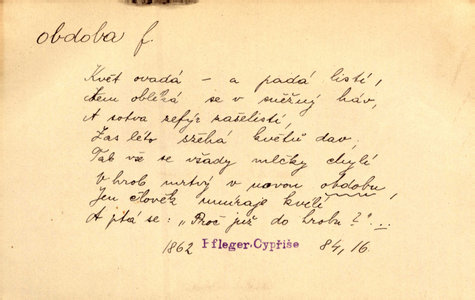 obdoba f.
Květ ovadá – a padá listí,
Zem obléká se v sněžný háv,
A sotva zefýr zašelistí,
Zas léto zjíhá květů dav;
Tak vše se všady mlčky chýlí
V hrob mrtvý v novou obdobu,
Jen člověk umíraje kvílí
A ptá se: „Proč již do hrobu?"...
1862 Pfleger, Cypřiše 84, 16.